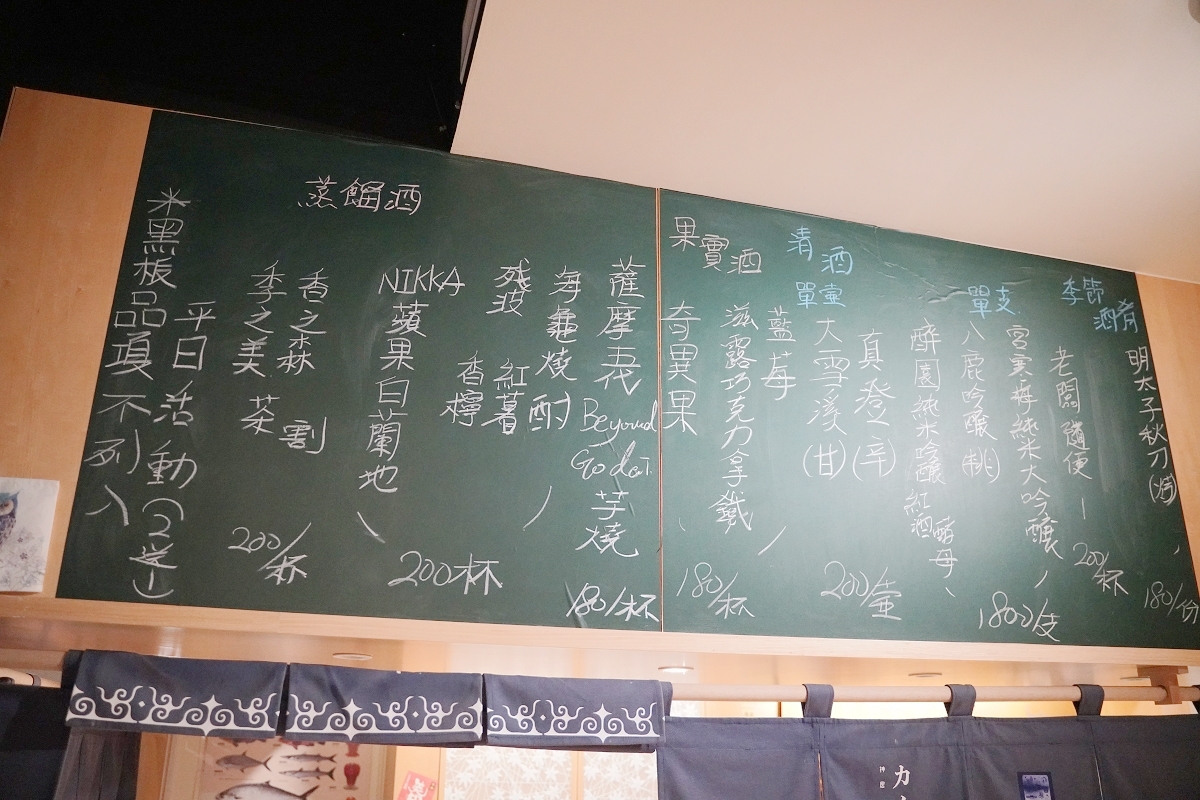 季節
酒肴
明太子秋刀(烤)
180/份
老闆隨便
200/杯
單支
宮寒梅純米大吟釀
八鹿吟釀(桃)
醉園純米吟釀紅酒酵母
1800/支
清酒
單壺
真澄(辛)
大雪溪(甘)
200/壺
果實酒
藍莓
滋露巧克力拿鐵
奇異果
180/杯
蒸餾酒
薩摩吾代
Beyond
芋燒
180/杯
海龜燒酎
殘波
紅薯
香檸
NIKKA
蘋果白蘭地
200杯
香之森
季之美
茶割
200/杯
※黑板品項不列入
平日活動(2送1)